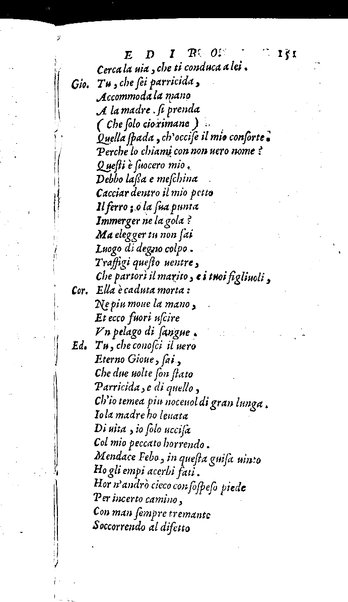 EDIPO. 151
Cerca la uia, che ti conduca a lei.
Gio. Tu, che ſei parricida,
Accommoda la mano
A la madre. ſi prenda
(Che ſolo cio rimane)
Quella ſpada, ch'occiſe il mio conſorte.
Perche lo chiami con non uero nome?
Queſti è ſuocero mio.
Debbo laſſa e meſchina
Cacciar dentro il mio petto
Il ferro; o la ſua punta
Immerger ne la gola?
Ma elegger tu non ſai
Luogo di degno colpo.
Traffigi queſto uentre,
Che partorì il marito, e i tuoi figliuoli,
Cor. Ella è caduta morta:
Ne piu moue la mano,
Et ecco fuori uſcire
Vn pelago di ſangue.
Ed. Tu, che conoſci il uero
Eterno Gioue, ſai,
Che due uolte ſon ſtato
Parricida, e di quello,
Ch'io temea piu noceuol di gran lunga.
Io la madre ho leuata
Di uita, io ſolo ucciſa
Col mio peccato horrendo.
Mendace Febo, in queſta guiſa uinto
Ho gli empi acerbi fati.
Hor n'andrò cieco con ſoſpeſo piede
Per incerto camino,
Con man ſempre tremante
Soccorrendo al difetto